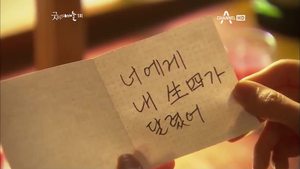 CHANNEL A HD
너에게
내 生四가
달렸어